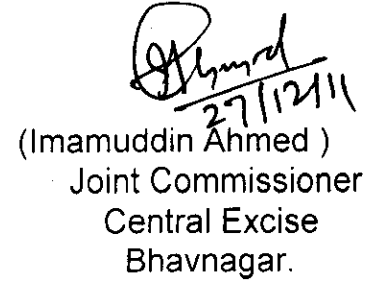 Ahmed
27/12/11
(Imamuddin Ahmed )
Joint Commissioner
Central Excise
Bhavnagar.